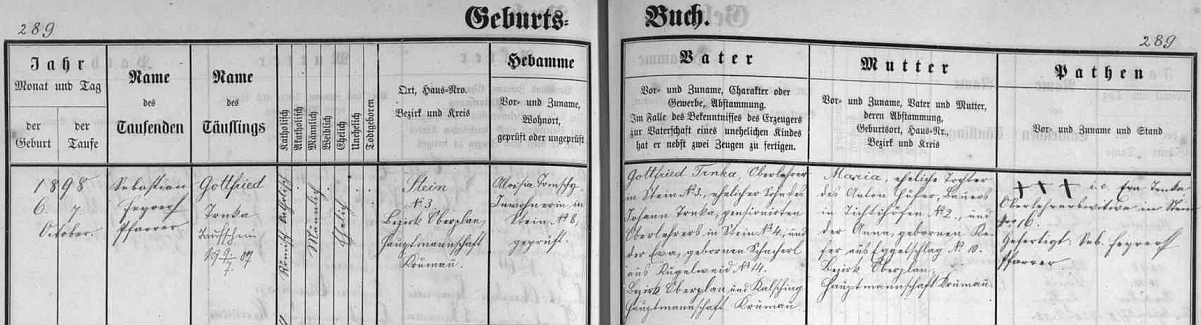 289
Geburts-
Buch.
289
Jahr
Monat und Tag
der Geburt
der Taufe
Name
des
Taufenden
Name
des
Täuflings
Katholisch
Akatholisch
Männlich
Weiblich
Ehelich
Unehelich
Todtgeboren
Ort, Haus-Nro.
Bezirk und Kreis
Hebamme
Vor- und Zuname,
Wohnort,
geprüft oder ungeprüft
Vater
Vor- und Zuname, Charakter oder
Gewerbe, Abstammung.
Im Falle des Bekenntnisses des Erzeugers
zur Vaterschaft eines unehelichen Kindes
hat er nebst zwei Zeugen zu fertigen.
Mutter
Vor- und Zuname, Vater und Mutter,
deren Abstammung,
Geburtsort, Haus-Nr.,
Bezirk und Kreis
Pathen
Vor- und Zuname und Stand
1898
6. 7.
October.
Sebastian
Pfarrer
Gottfried
Trnka
Taufschein
Römisch katholisch
Männlich
Ehelich
Stein
N° 3
Bezirk Oberplan,
Hauptmannschaft
Krumau.
Aloisia
Inwohnerin in
Stein N° 8,
geprüft.
Gottfried Trnka, Oberlehrer
in Stein N° 3, ehelicher Sohn des
Johann Trnka, pensionirten
Oberlehrers in Stein N° 4, und
der Eva, gebornen
aus Kugelwaid N° 14.
Bezirk Oberplan und Kalsching
Hauptmannschaft Krumau.
Maria, eheliche Tochter
des Anton Bauers
in N° 2, und
der Anna, gebornen
aus Eggetschlag N° 10.
Bezirk Oberplan,
Hauptmannschaft Krumau.
+++ i.e. Eva Trnka
Oberlehrerswitwe in Stein
N° 16.
Gefertigt: Seb.
Pfarrer